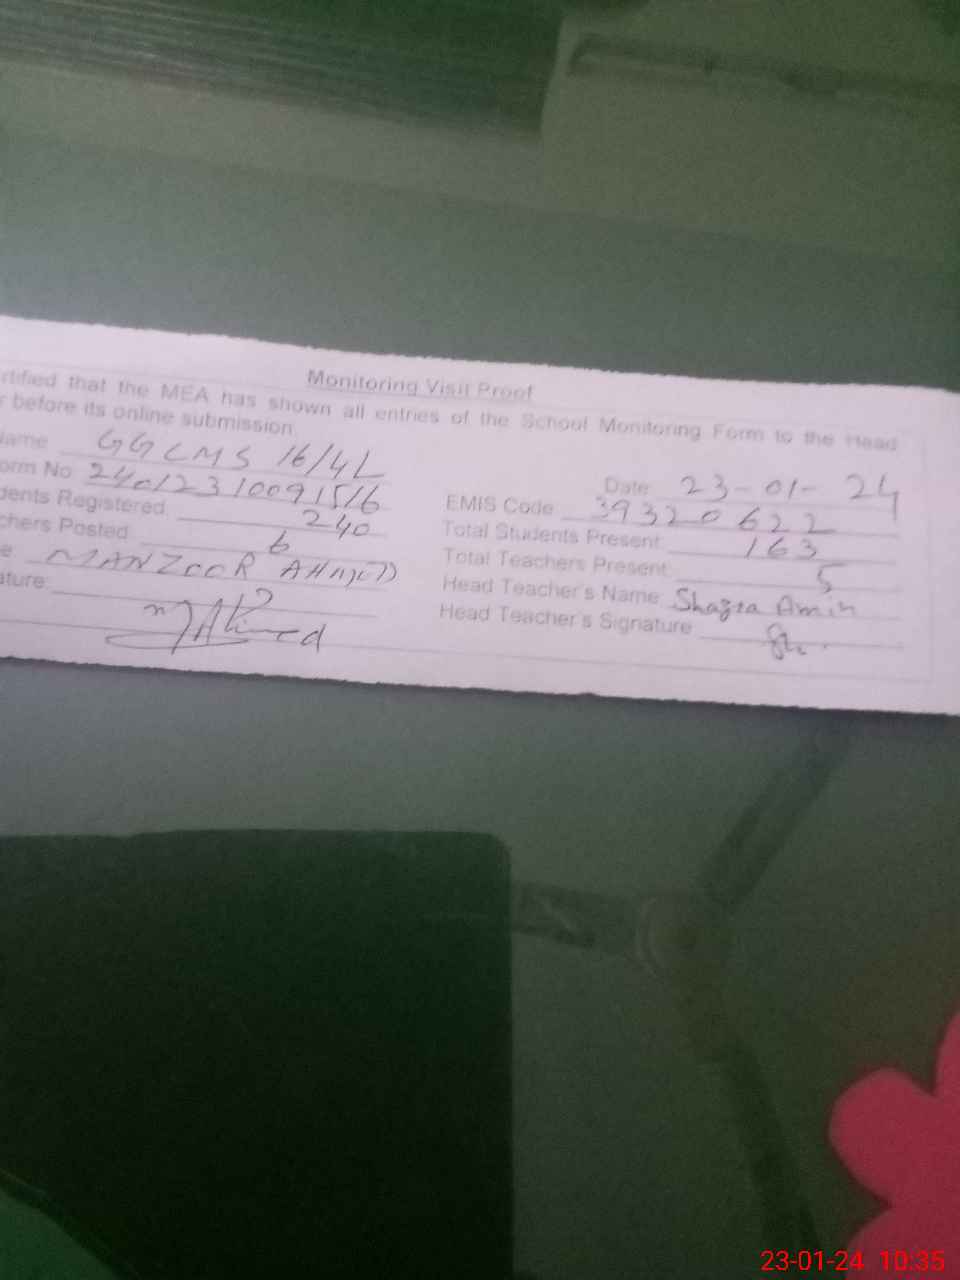 Monitoring Visit Proof
rtified that the MEA has shown all entries of the School Monitoring Form to the Head
r before its online submission
Name GGCMS 16/4L
Date 23-01-24
orm No 24012310091516
EMIS Code 39320622
dents Registered 240
Total Students Present 163
chers Posted 6
Total Teachers Present 5
e MANZOOR AHMED
Head Teacher's Name Shazra Amin
ature MAhmed
Head Teacher's Signature
23-01-24 10:35